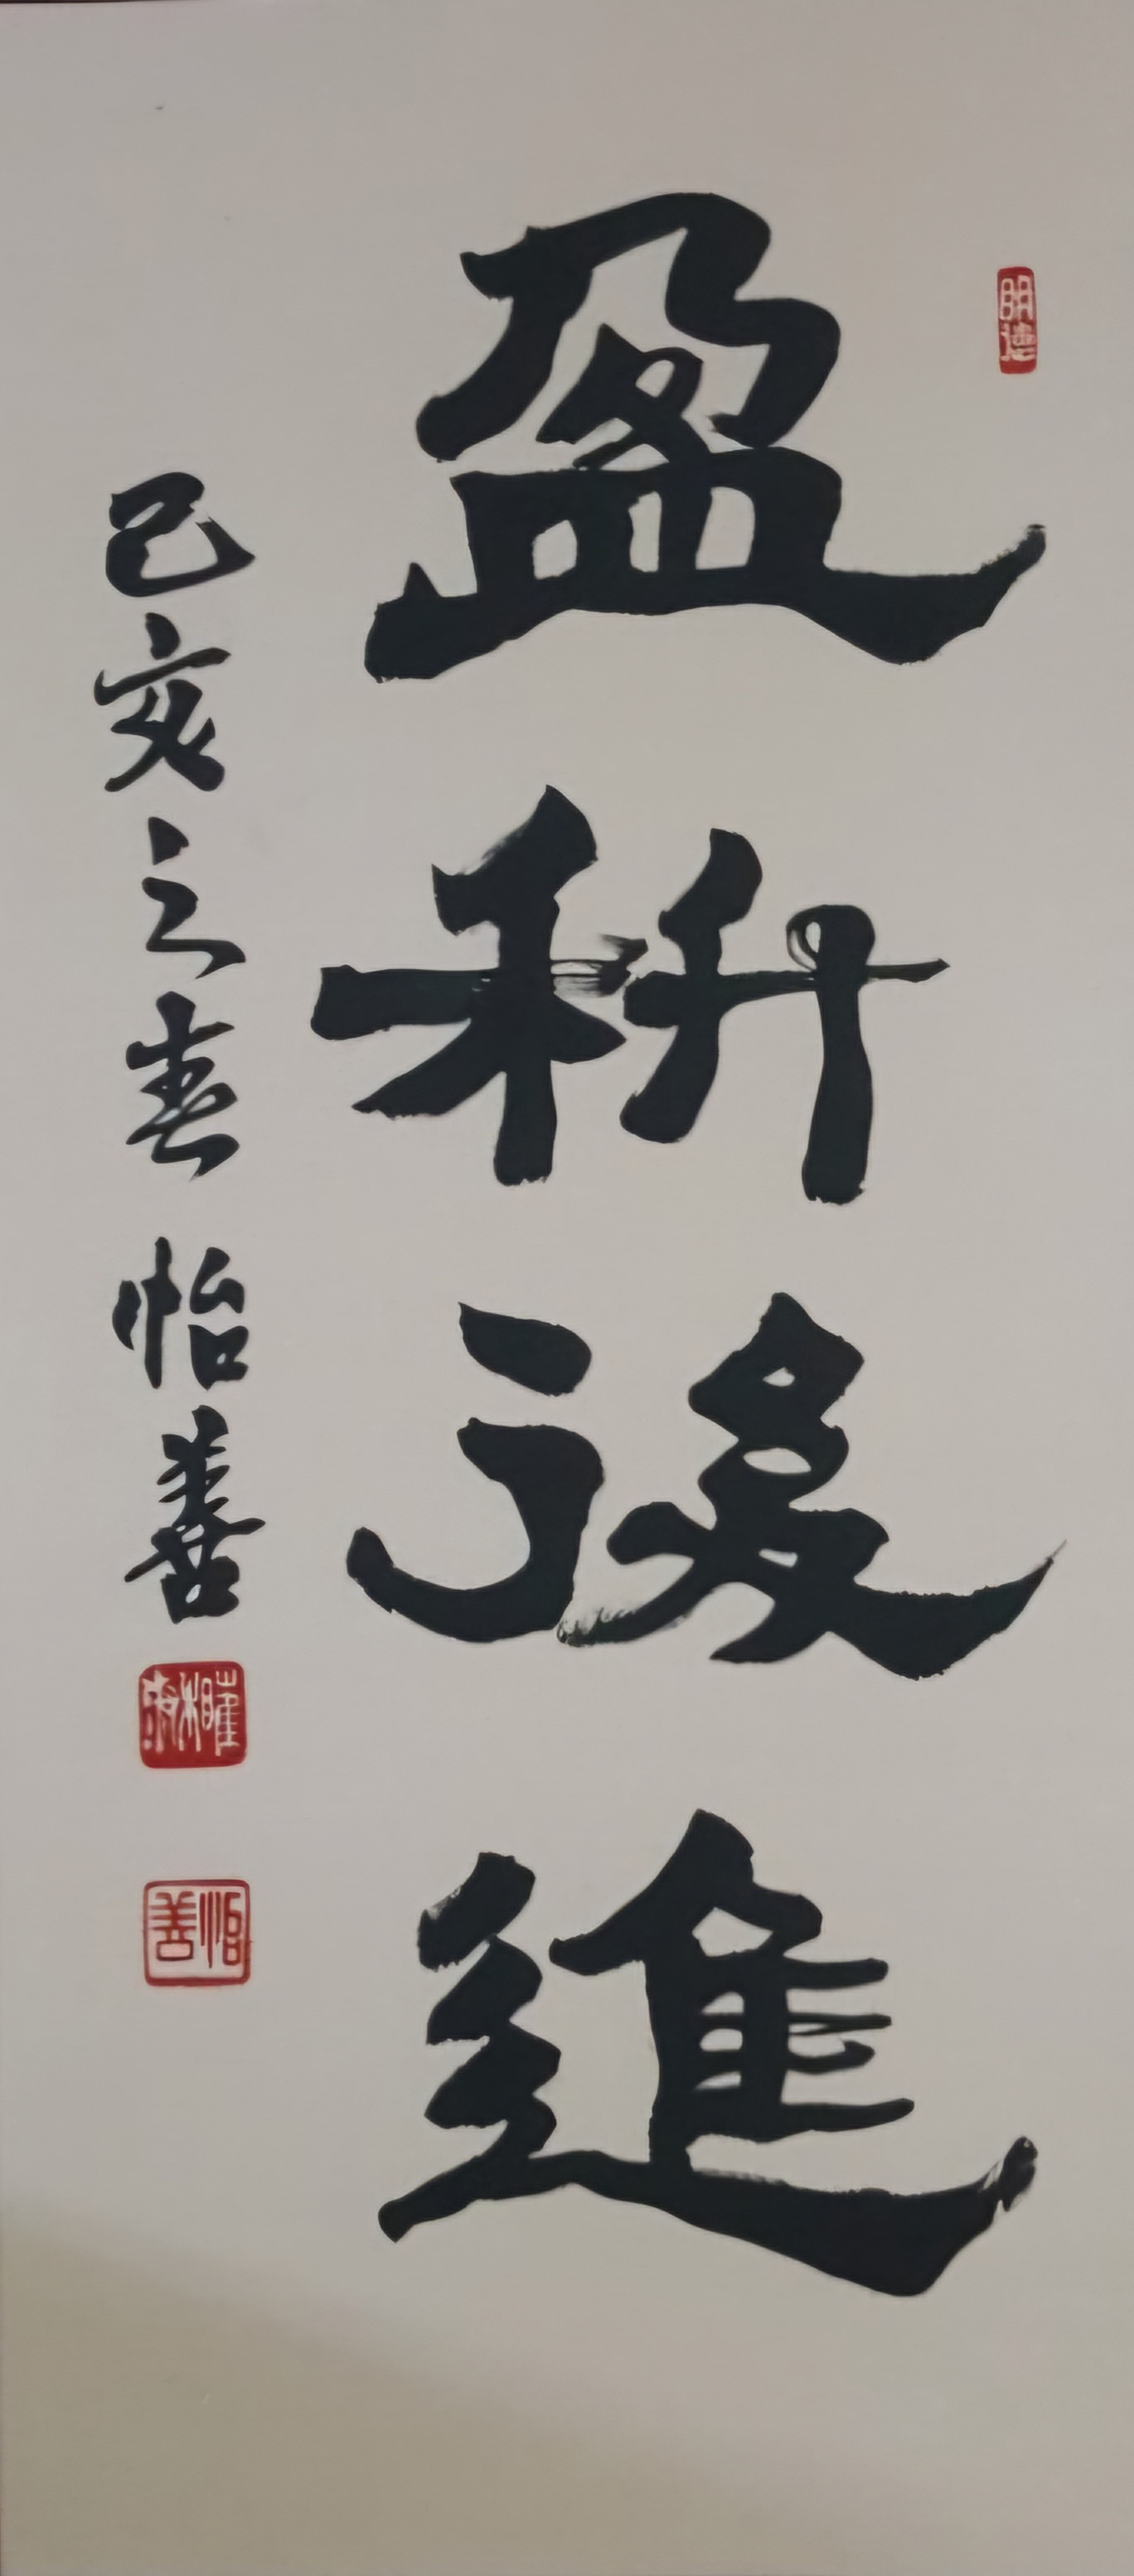 盈科後進
己亥之春 怡善
怡善